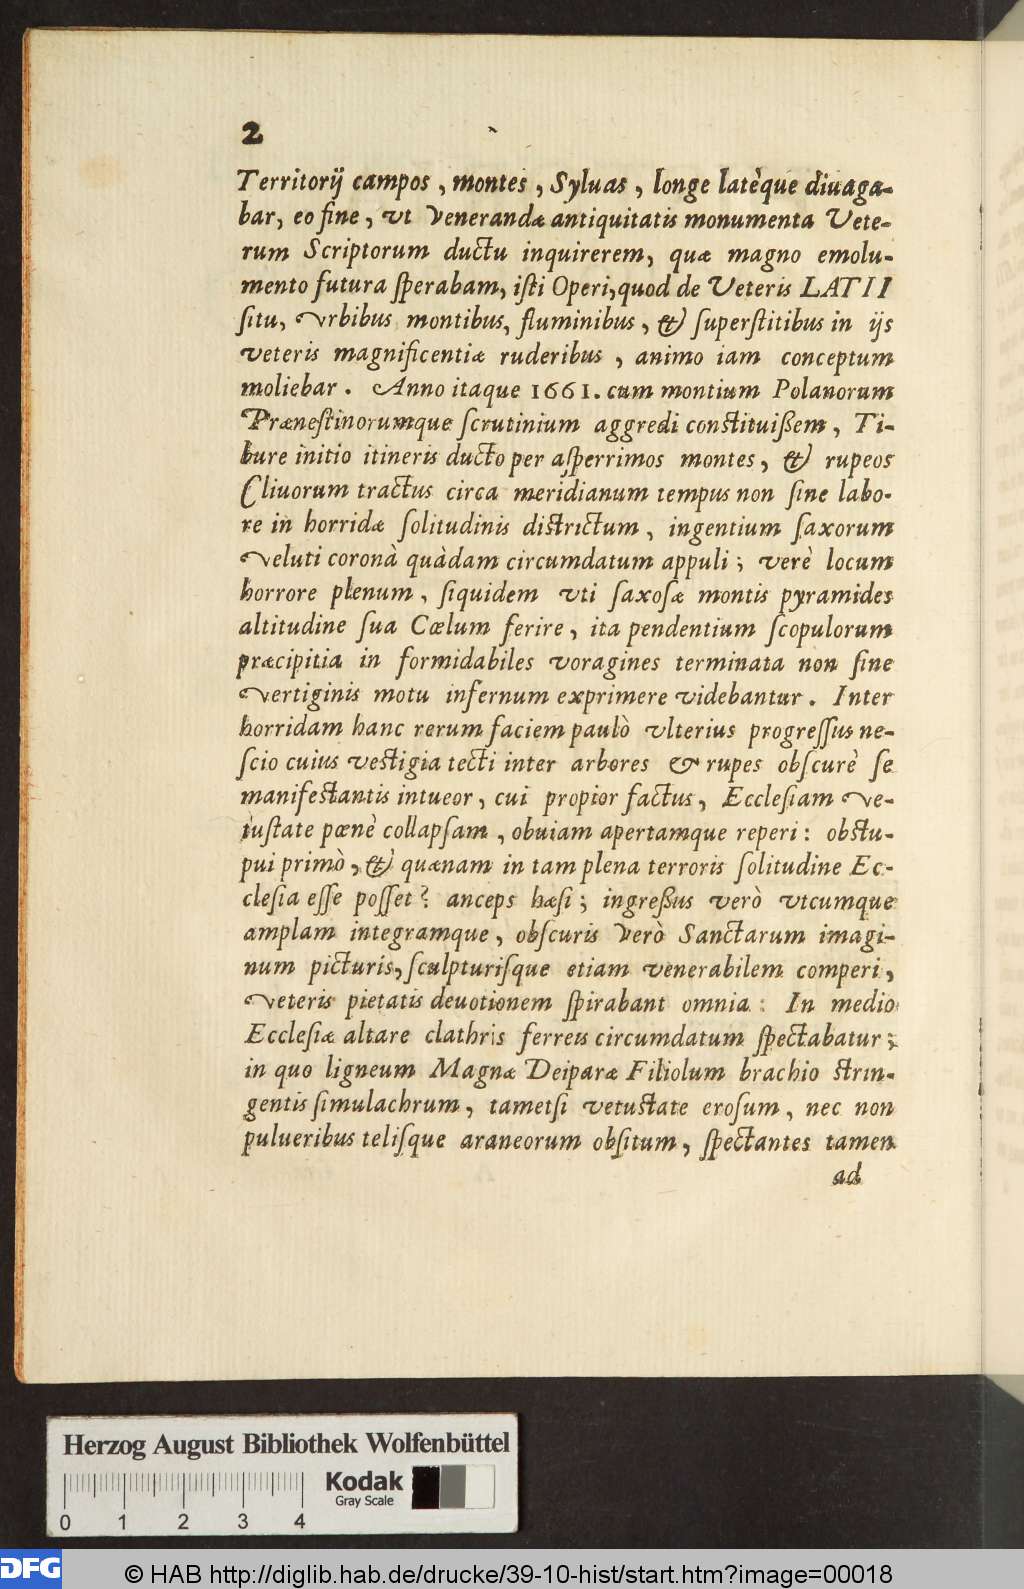 2
Territorij campos, montes, Syluas, longe latèque diuaga-
bar, eo fine, vt Venerandæ antiquitatis monumenta Vete-
rum Scriptorum ductu inquirerem, quæ magno emolu-
mento futura sperabam, isti Operi, quod de Veteris LATII
situ, Vrbibus montibus, fluminibus, & superstitibus in ijs
veteris magnificentiæ ruderibus, animo iam conceptum
moliebar. Anno itaque 1661. cum montium Polanorum
Prænestinorumque scrutinium aggredi constituißem, Ti-
bure initio itineris ducto per asperrimos montes, & rupeos
Cliuorum tractus circa meridianum tempus non sine labo-
re in horridæ solitudinis districtum, ingentium saxorum
veluti coronà quàdam circumdatum appuli; verè locum
horrore plenum, siquidem vti saxosæ montis pyramides
altitudine sua Cœlum ferire, ita pendentium scopulorum
præcipitia in formidabiles voragines terminata non sine
vertiginis motu infernum exprimere videbantur. Inter
horridam hanc rerum faciem paulò vlterius progressus ne-
scio cuius vestigia tecti inter arbores & rupes obscurè se
manifestantis intueor, cui propior factus, Ecclesiam ve-
tustate pœnè collapsam, obuiam apertamque reperi: obstu-
pui primò, & quænam in tam plena terroris solitudine Ec-
clesia esse posset? anceps hæsi; ingreßus verò vtcumque
amplam integramque, obscuris Verò Sanctarum imagi-
num picturis, sculpturisque etiam venerabilem comperi,
veteris pietatis deuotionem spirabant omnia: In medio
Ecclesiæ altare clathris ferreis circumdatum spectabatur;
in quo ligneum Magnæ Deiparæ Filiolum brachio strin-
gentis simulachrum, tametsi vetustate erosum, nec non
pulueribus telisque araneorum obsitum, spectantes tamen
ad
Herzog August Bibliothek Wolfenbüttel
Kodak
Gray Scale
0 1 2 3 4
DFG © HAB http://diglib.hab.de/drucke/39-10-hist/start.htm?image=00018